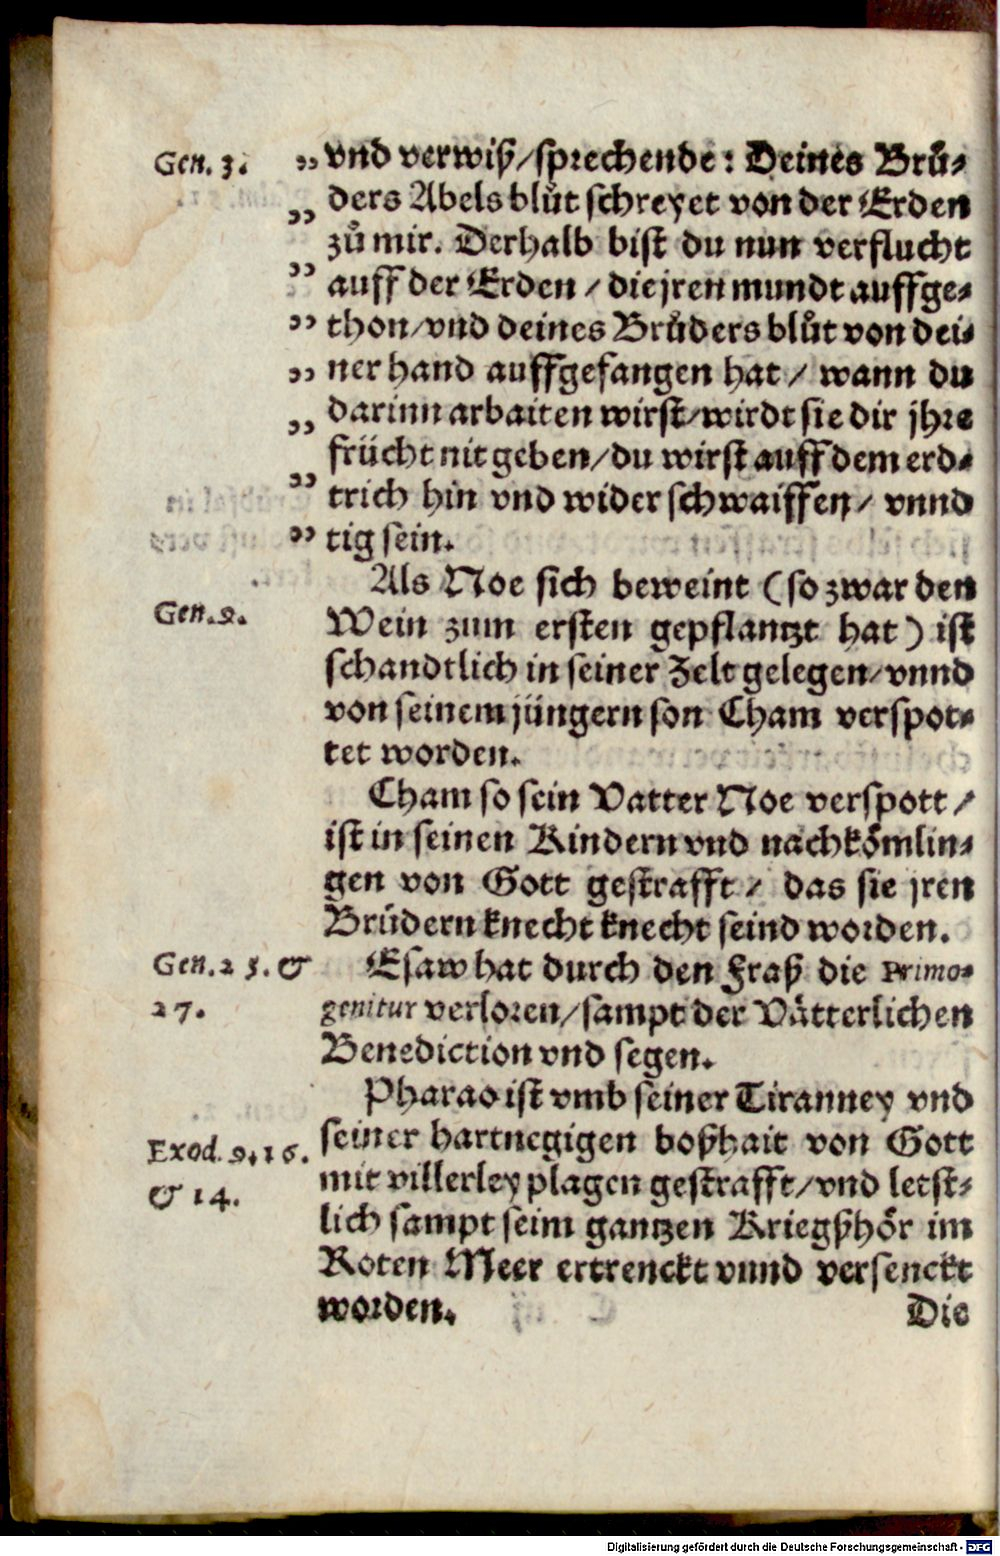 Gen. 3. ” vnd verwiß/sprechende: Deines Brů⸗
” ders Abels blůt schreyet von der Erden
zů mir. Derhalb bist du nun verflucht
” auff der Erden / die jren mundt auffge⸗
” thon/vnd deines Brůders blůt von dei⸗
” ner hand auffgefangen hat / wann du
” darinn arbaiten wirst/wirdt sie dir jhre
frücht nit geben/du wirst auff dem erd⸗
” trich hin vnd wider schwaiffen/ vnnd
” tig sein.
Als Noe sich beweint (so zwar den
Gen. 9. Wein zum ersten gepflantzt hat) ist
schandtlich in seiner Zelt gelegen/vnnd
von seinem jüngern son Cham verspot⸗
tet worden.
Cham so sein Vatter Noe verspott /
ist in seinen Kindern vnd nachkömlin⸗
gen von Gott gestrafft / das sie jren
Brüdern knecht knecht seind worden.
Gen. 25. & Esaw hat durch den Fraß die Primo⸗
27. genitur verloren/sampt der Vätterlichen
Benediction vnd segen.
Pharao ist vmb seiner Tiranney vnd
Exod. 9. 16. seiner hartnegigen boßhait von Gott
& 14. mit villerley plagen gestrafft/vnd letst⸗
lich sampt seim gantzen Kriegßhör im
Roten Meer ertrenckt vnnd versenckt
worden. Die
Digitalisierung gefördert durch die Deutsche Forschungsgemeinschaft - DFG